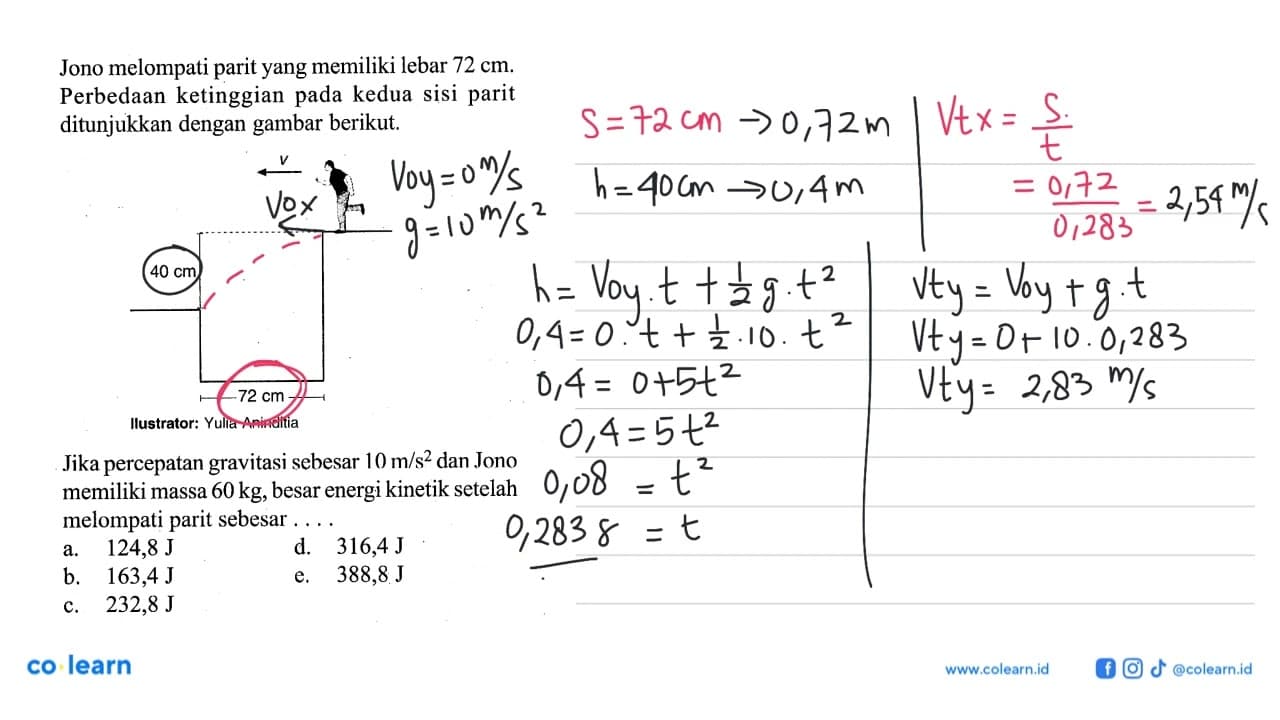 Jono melompati parit yang memiliki lebar 72 cm.
Perbedaan ketinggian pada kedua sisi parit
ditunjukkan dengan gambar berikut.
v
Vox
40 cm
72 cm
Ilustrator: Yulia Aninditia
Voy = 0 m/s
g = 10 m/s²
Jika percepatan gravitasi sebesar 10 m/s² dan Jono
memiliki massa 60 kg, besar energi kinetik setelah
melompati parit sebesar . . . .
a. 124,8 J
b. 163,4 J
c. 232,8 J
d. 316,4 J
e. 388,8 J
S = 72 cm → 0,72 m
h = 40 cm → 0,4 m
h = Voy . t + 1/2 g . t²
0,4 = 0 . t + 1/2 . 10 . t²
0,4 = 0 + 5t²
0,4 = 5t²
0,08 = t²
0,283 s = t
Vtx = S/t
= 0,72/0,283 = 2,54 m/s
Vty = Voy + g . t
Vty = 0 + 10 . 0,283
Vty = 2,83 m/s
co·learn
www.colearn.id
@colearn.id